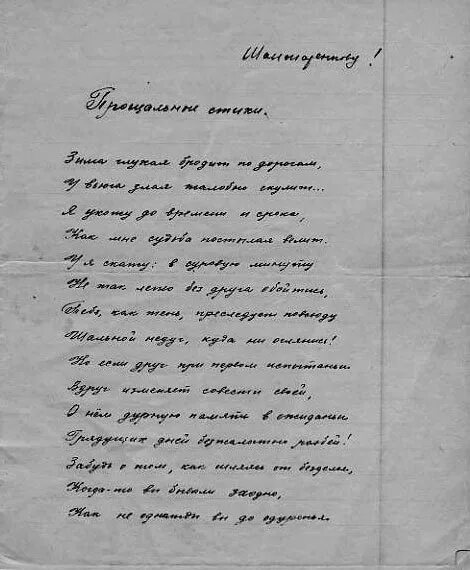 Шантаренкову!
Прощальные стихи.
Зима глухая бродит по дорогам,
И вьюга злая жалобно скулит...
Я ухожу до времени и срока,
Как мне судьба постылая велит.
И я скажу: в суровую минуту
Не так легко без друга обойтись,
Тебя, как тень, преследует повсюду
Шальной недуг, куда ни оглянись!
Но если друг при первом испытаньи
Вдруг изменяет совести своей,
О нём дурную память в ожиданьи
Грядущих дней безжалостно развей!
Забудь о том, как шлялись от безделья,
Когда-то вы бывали заодно,
Как не однажды вы до одуренья